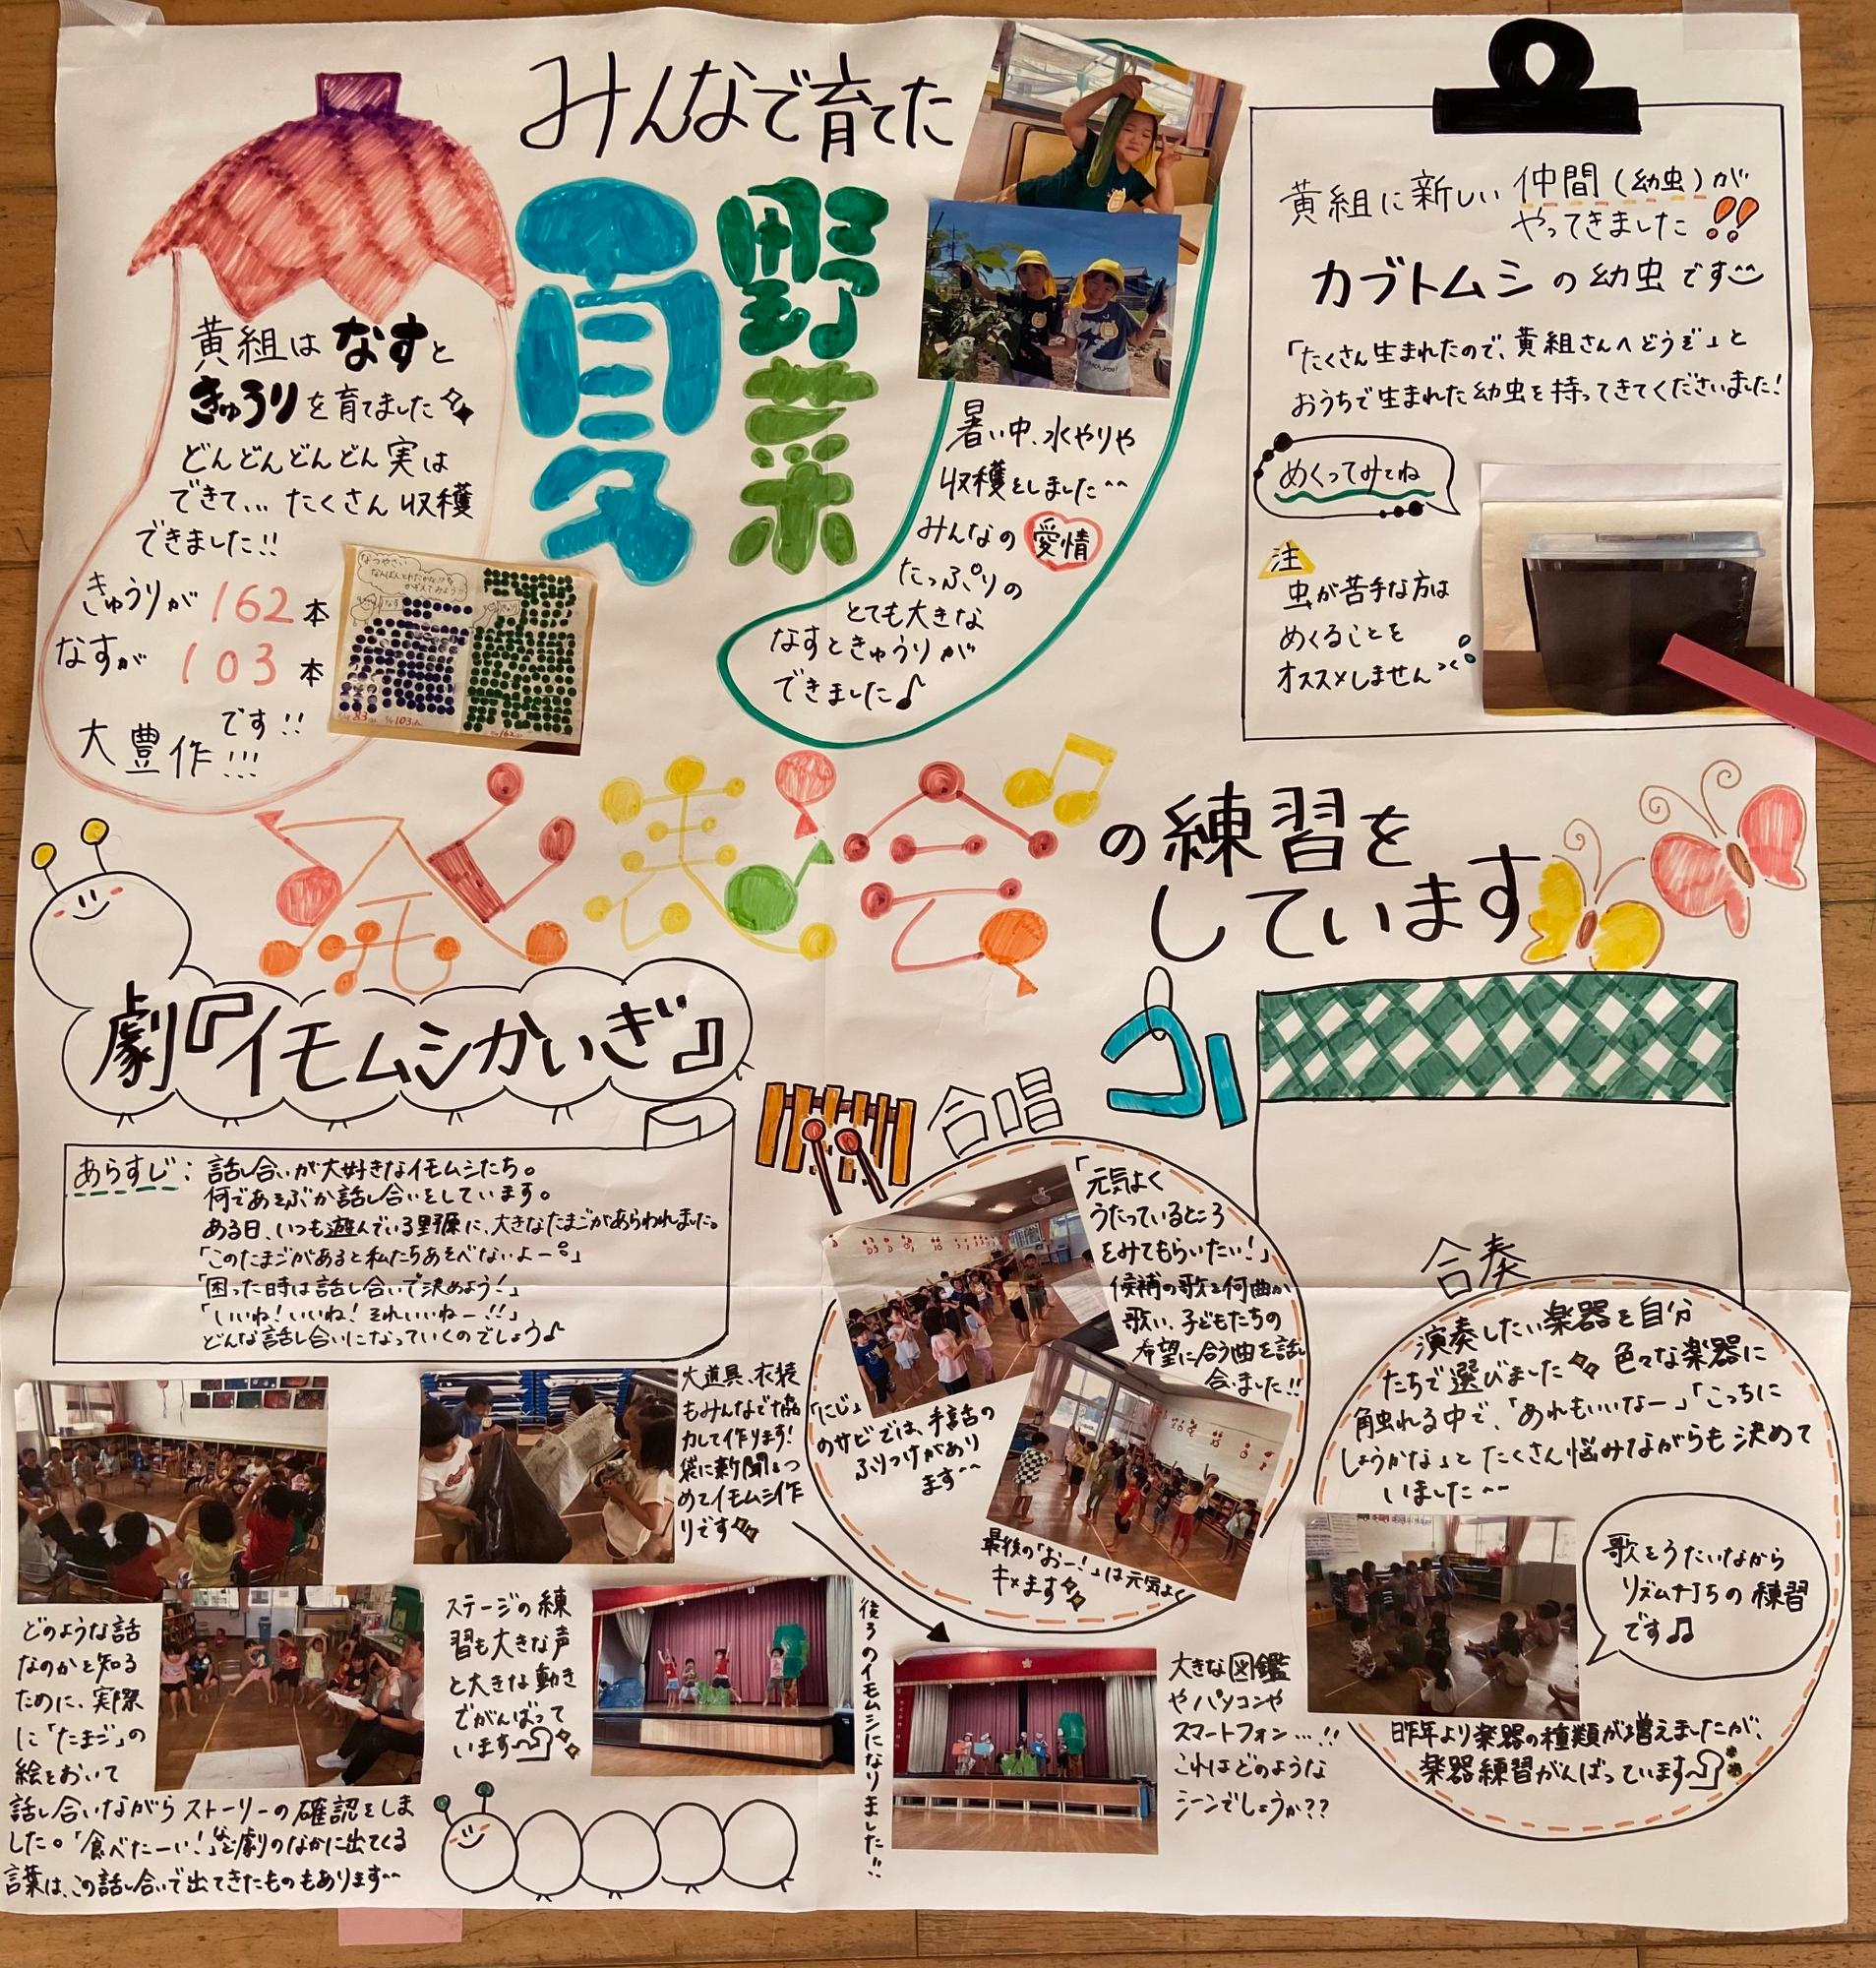 みんなで育てた
夏
野菜
黄組は なすと
きゅうりを育てました
どんどんどんどん実は
できて… たくさん収穫
できました!!
きゅうりが 162本
なすが 103本
です!!
大豊作!!!
なつやさい
なんぼんとれたかな!?
かぞえてみよう
なす
83
103
162
暑い中、水やりや
収穫をしました^^
みんなの愛情
たっぷりの
とても大きな
なすときゅうりが
できました♪
黄組に新しい仲間(幼虫)が
やってきました!!
カブトムシの幼虫です
「たくさん生まれたので、黄組さんへどうぞ」と
おうちで生まれた幼虫を持ってきてくださいました!
めくってみてね
注
虫が苦手な方は
めくることを
オススメしません><
発表会の練習を
しています
劇『イモムシかいぎ』
あらすじ: 話し合いが大好きなイモムシたち。
何であそぶか話し合いをしています。
ある日、いつも遊んでいる野原に、大きなたまごがあらわれました。
「このたまごがあると私たちあそべないよー。」
「困った時は話し合いで決めよう!」
「いいね!いいね!それいいねー!!」
どんな話し合いになっていくのでしょう♪
大道具、衣装
もみんなで協
力して作ります!
袋に新聞をつ
めてイモムシ作
りです
どのような話
なのかを知る
ために、実際
に「たまご」の
絵をおいて
話し合いながらストーリーの確認をしま
した。「食べたーい!」など劇のなかに出てくる
言葉は、この話し合いで出てきたものもあります^^
ステージの練
習も大きな声
と大きな動き
でがんばって
います
後ろのイモムシになりました!!
大きな図鑑
やパソコンや
スマートフォン…!!
これはどのような
シーンでしょうか??
合唱
「元気よく
うたっているところ
をみてもらいたい!」
候補の歌を何曲か
歌い、子どもたちの
希望に合う曲を話し
合いました!!
「にじ」
のサビでは、手話の
ふりつけがあり
ます^^
最後の「おー!」は元気よく
キメます
合奏
演奏したい楽器を自分
たちで選びました 色々な楽器に
触れる中で、「あれもいいなー」「こっちに
しようかな」とたくさん悩みながらも決めて
いました^^
歌をうたいながら
リズム打ちの練習
です♫
昨年より楽器の種類が増えましたが、
楽器練習がんばっています